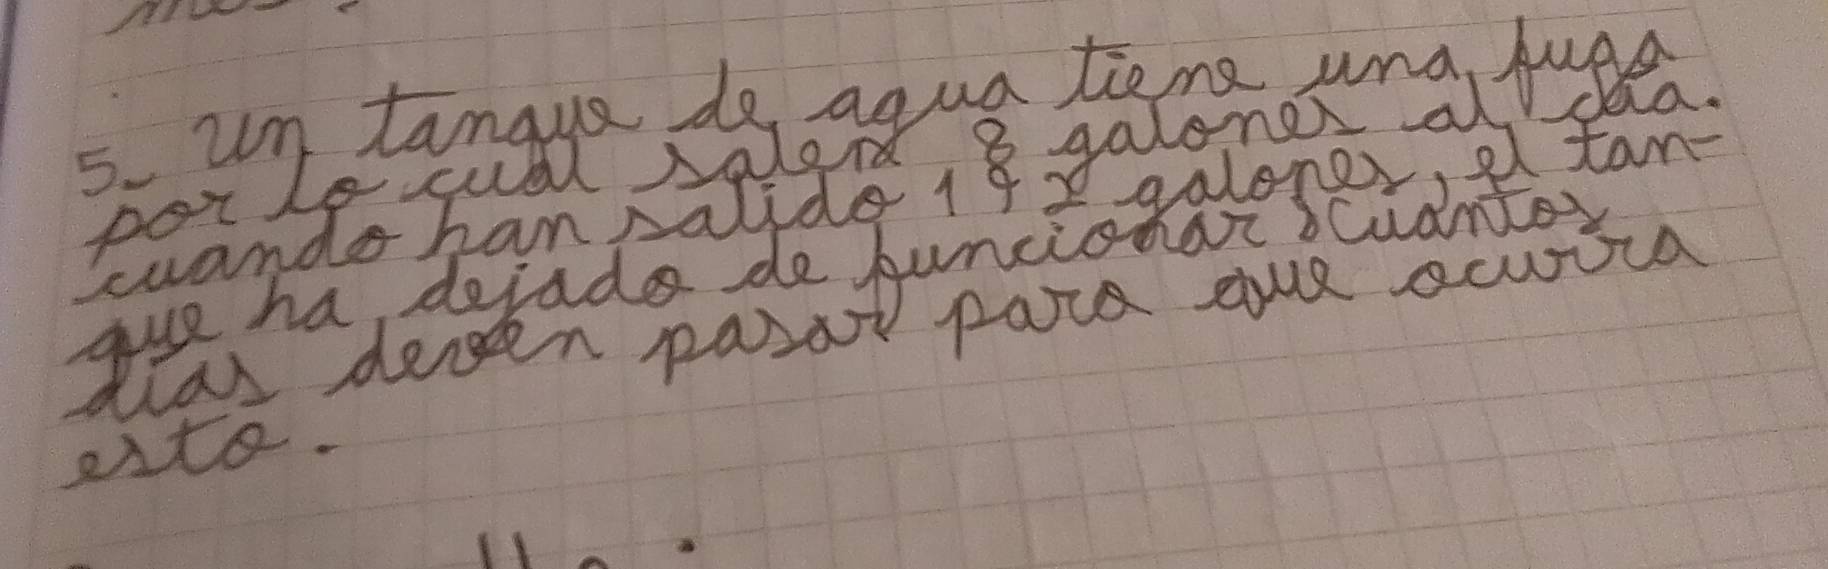 5- Un tanque de agua tiene una fuga
por lo cual salen 8 galones al día.
cuando han salido 192 galones, el tan-
que ha dejado de funcionar ¿Cuantos
dias deven pasar para que ocurra
esto.